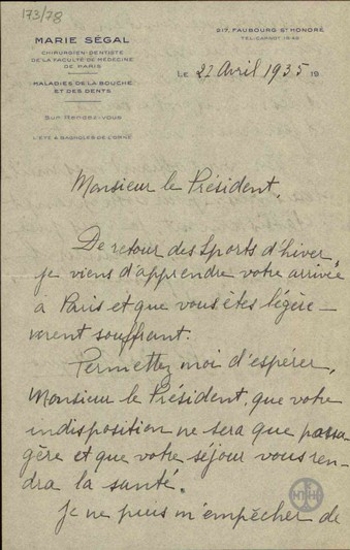 173/78
MARIE SÉGAL
CHIRURGIEN-DENTISTE
DE LA FACULTÉ DE MÉDECINE
DE PARIS
MALADIES DE LA BOUCHE
ET DES DENTS
SUR RENDEZ-VOUS
L'ÉTÉ À BAGNOLES-DE-L'ORNE
217, FAUBOURG ST HONORÉ
TÉL: CARNOT
LE 22 Avril 1935 19
Monsieur le Président,
De retour des Sports d'hiver,
je viens d'apprendre votre arrivée
à Paris et que vous êtes légère-
ment souffrant.
Permettez moi d'espérer,
Monsieur le Président, que votre
indisposition ne sera que passa
gère et que votre séjour vous ren-
dra la santé.
Je ne puis m'empêcher de